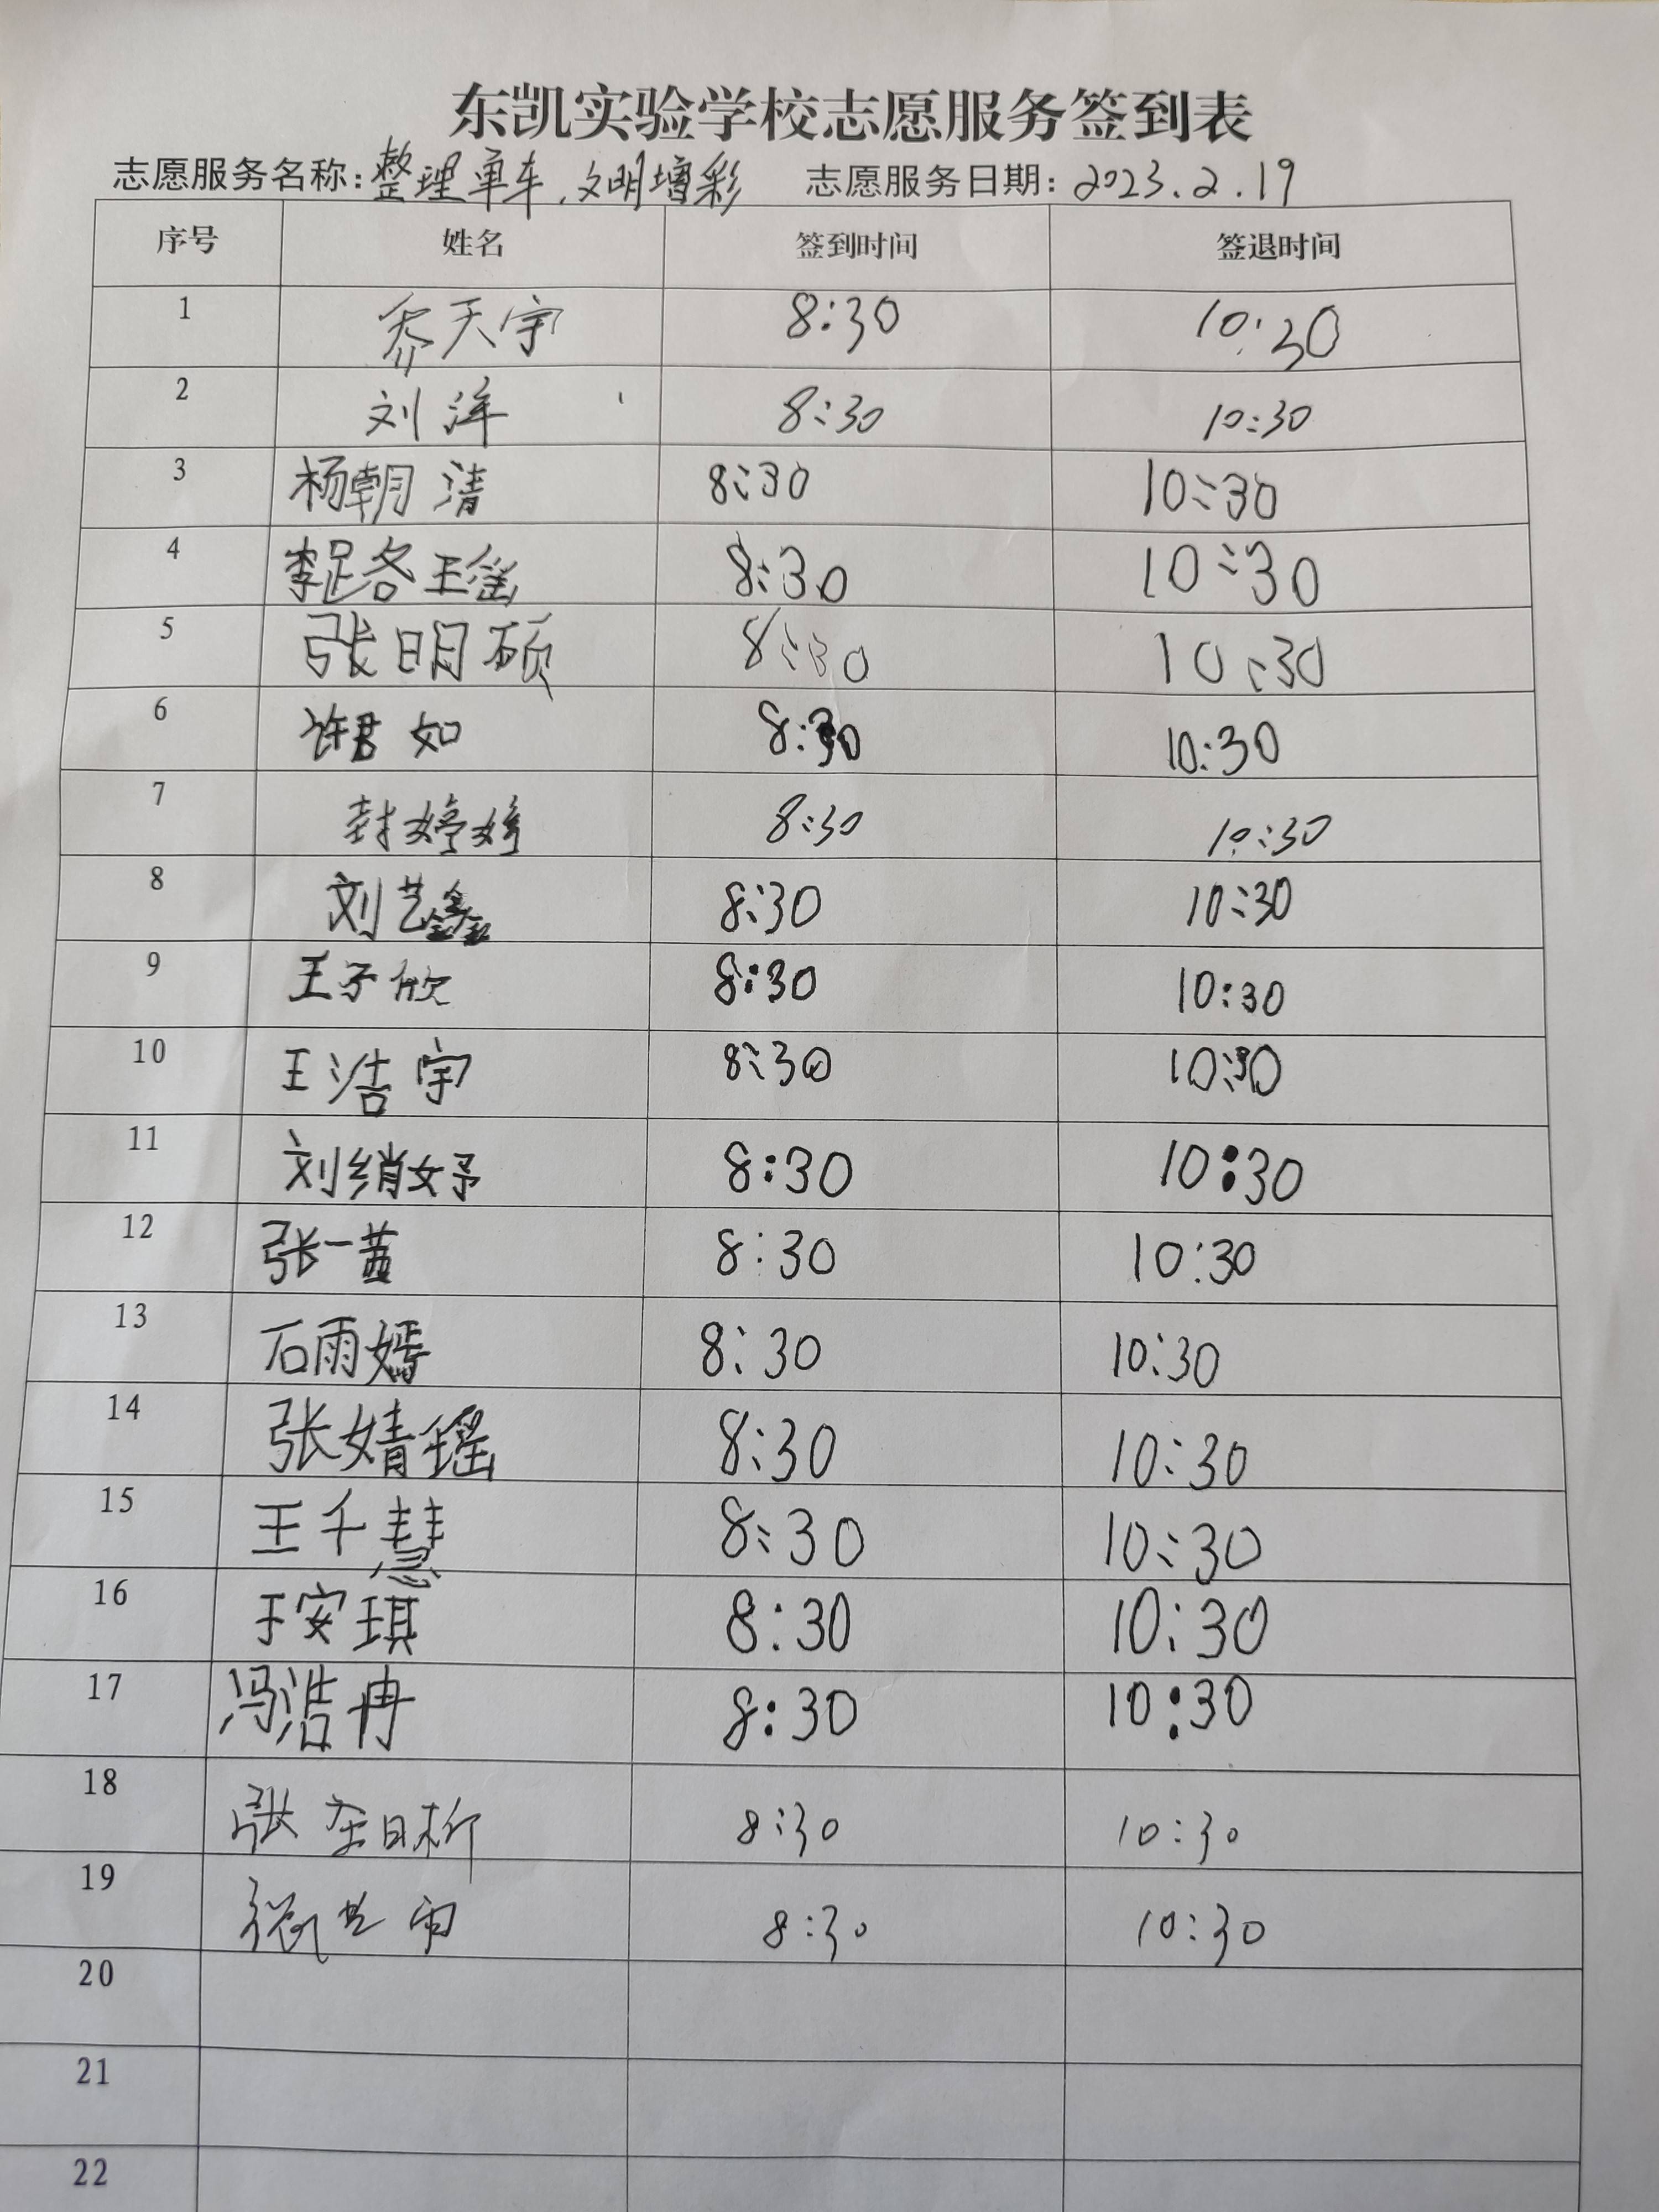 东凯实验学校志愿服务签到表
志愿服务名称:整理单车,文明增彩 志愿服务日期:2023.2.19
序号 姓名 签到时间 签退时间
1 乔天宇 8:30 10:30
2 刘洋 8:30 10:30
3 杨朝清 8:30 10:30
4 李路瑶 8:30 10:30
5 张明硕 8:30 10:30
6 许君如 8:30 10:30
7 封婷婷 8:30 10:30
8 刘艺鑫 8:30 10:30
9 王子欣 8:30 10:30
10 王浩宇 8:30 10:30
11 刘绡妤 8:30 10:30
12 张一茜 8:30 10:30
13 石雨嫣 8:30 10:30
14 张婧瑶 8:30 10:30
15 王千慧 8:30 10:30
16 于安琪 8:30 10:30
17 冯浩冉 8:30 10:30
18 张 8:30 10:30
19 张艺 8:30 10:30
20
21
22